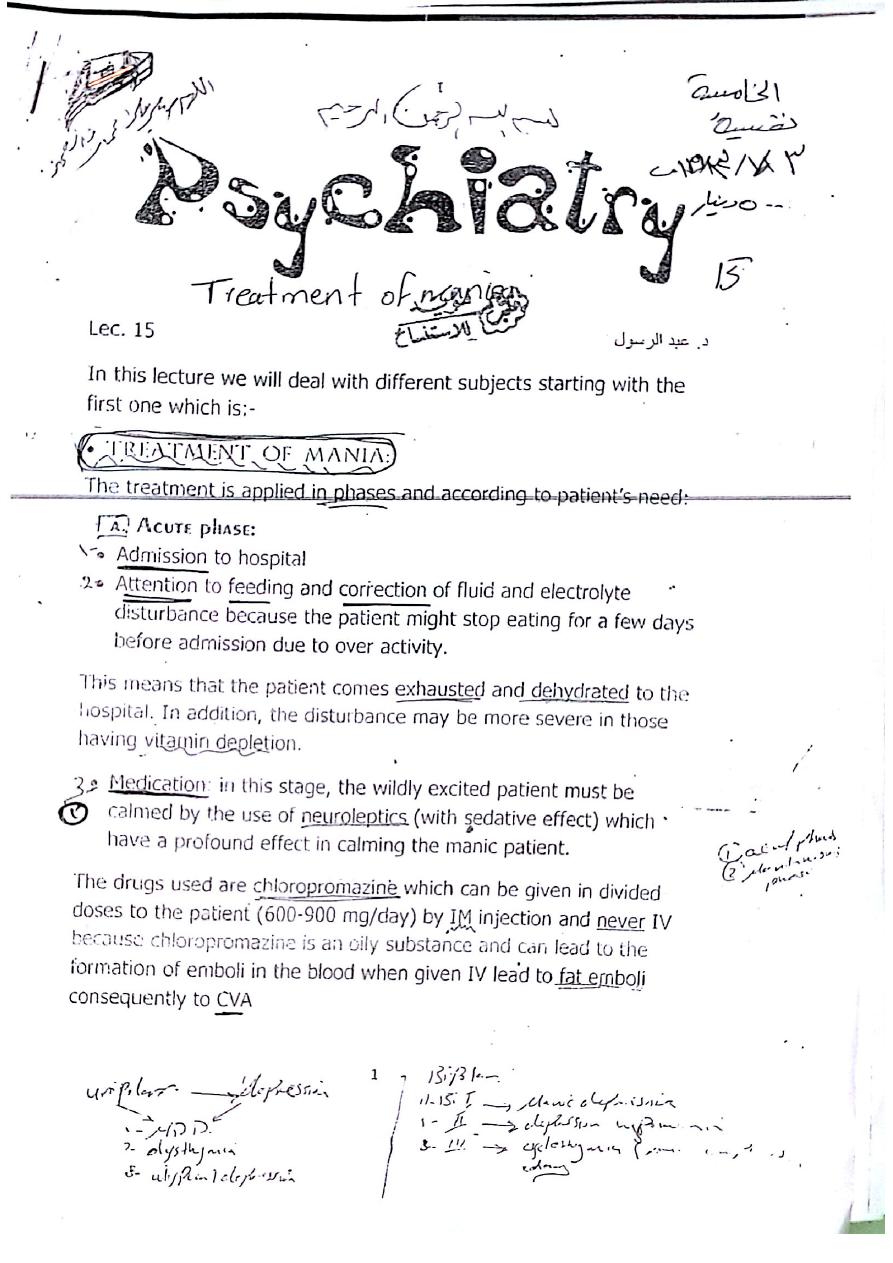 بسم الله الرحمن الرحيم
الخامسة
نفسية
Psychiatry
دينار
15
Treatment of mania
للاستنساخ
Lec. 15
د. عبد الرسول
In this lecture we will deal with different subjects starting with the
first one which is:-
• TREATMENT OF MANIA:
The treatment is applied in phases and according to patient's need:
A. ACUTE PHASE:
1- Admission to hospital
2- Attention to feeding and correction of fluid and electrolyte
disturbance because the patient might stop eating for a few days
before admission due to over activity.
This means that the patient comes exhausted and dehydrated to the
hospital. In addition, the disturbance may be more severe in those
having vitamin depletion.
3- Medication: in this stage, the wildly excited patient must be
calmed by the use of neuroleptics (with sedative effect) which
have a profound effect in calming the manic patient.
① phase
② phase
The drugs used are chloropromazine which can be given in divided
doses to the patient (600-900 mg/day) by IM injection and never IV
because chloropromazine is an oily substance and can lead to the
formation of emboli in the blood when given IV lead to fat emboli
consequently to CVA
1
unipolar → depression
1- MDD
2- dysthymia
3- depression
Bipolar
I → manic depression
II → depression
III → cyclothymia